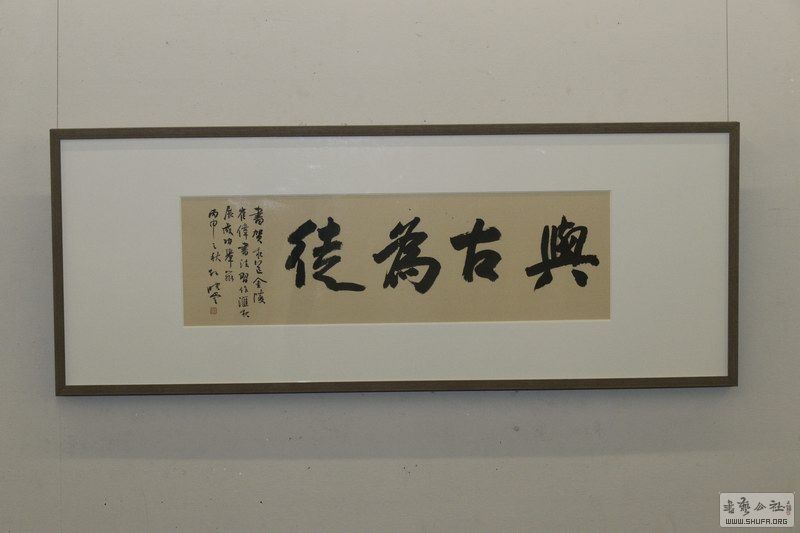 與古為徒
書賀
金陵
崔偉書法習作匯報
展成功舉辦
丙申之秋
書藝公社
WWW.SHUFA.ORG